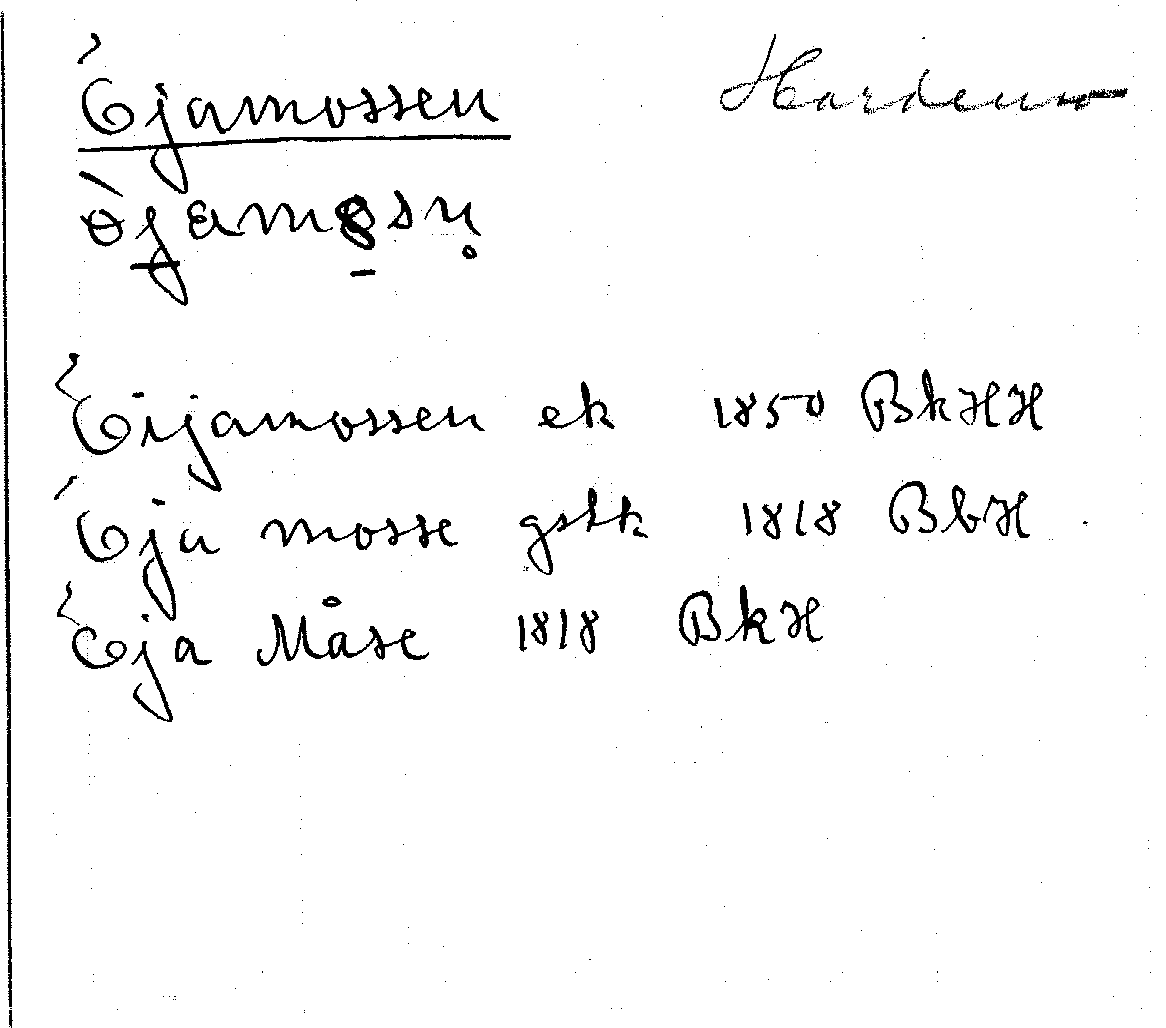 Ejamossen Hardemo
Eijamossen ek 1850 BkHH
Eja mosse gstk 1818 BbH
Eja Måse 1818 BkH